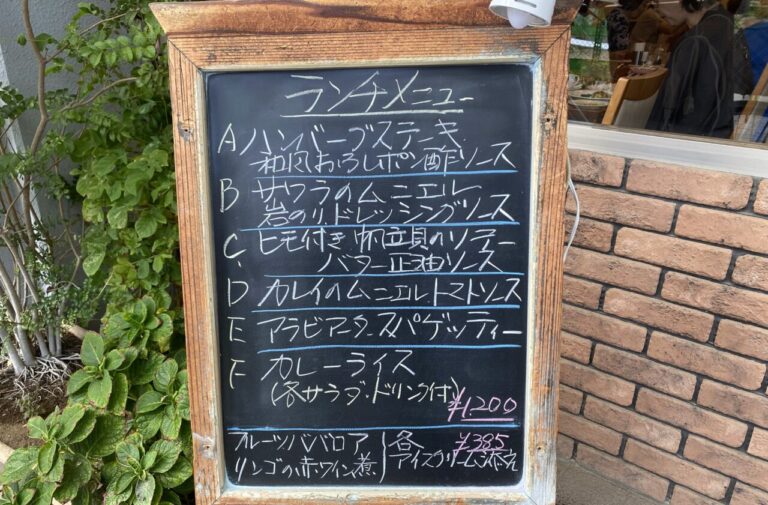 ランチメニュー
A ハンバーグステーキ
和風おろしポン酢ソース
B サワラのムニエル
岩のりドレッシングソース
C ヒモ付き帆立貝のソテー
バター正油ソース
D カレイのムニエルトマトソース
E アラビアータスパゲッティー
F カレーライス
(各サラダ・ドリンク付)
¥1,200
フルーツババロア
リンゴの赤ワイン煮
各 ¥385
アイスクリーム添え